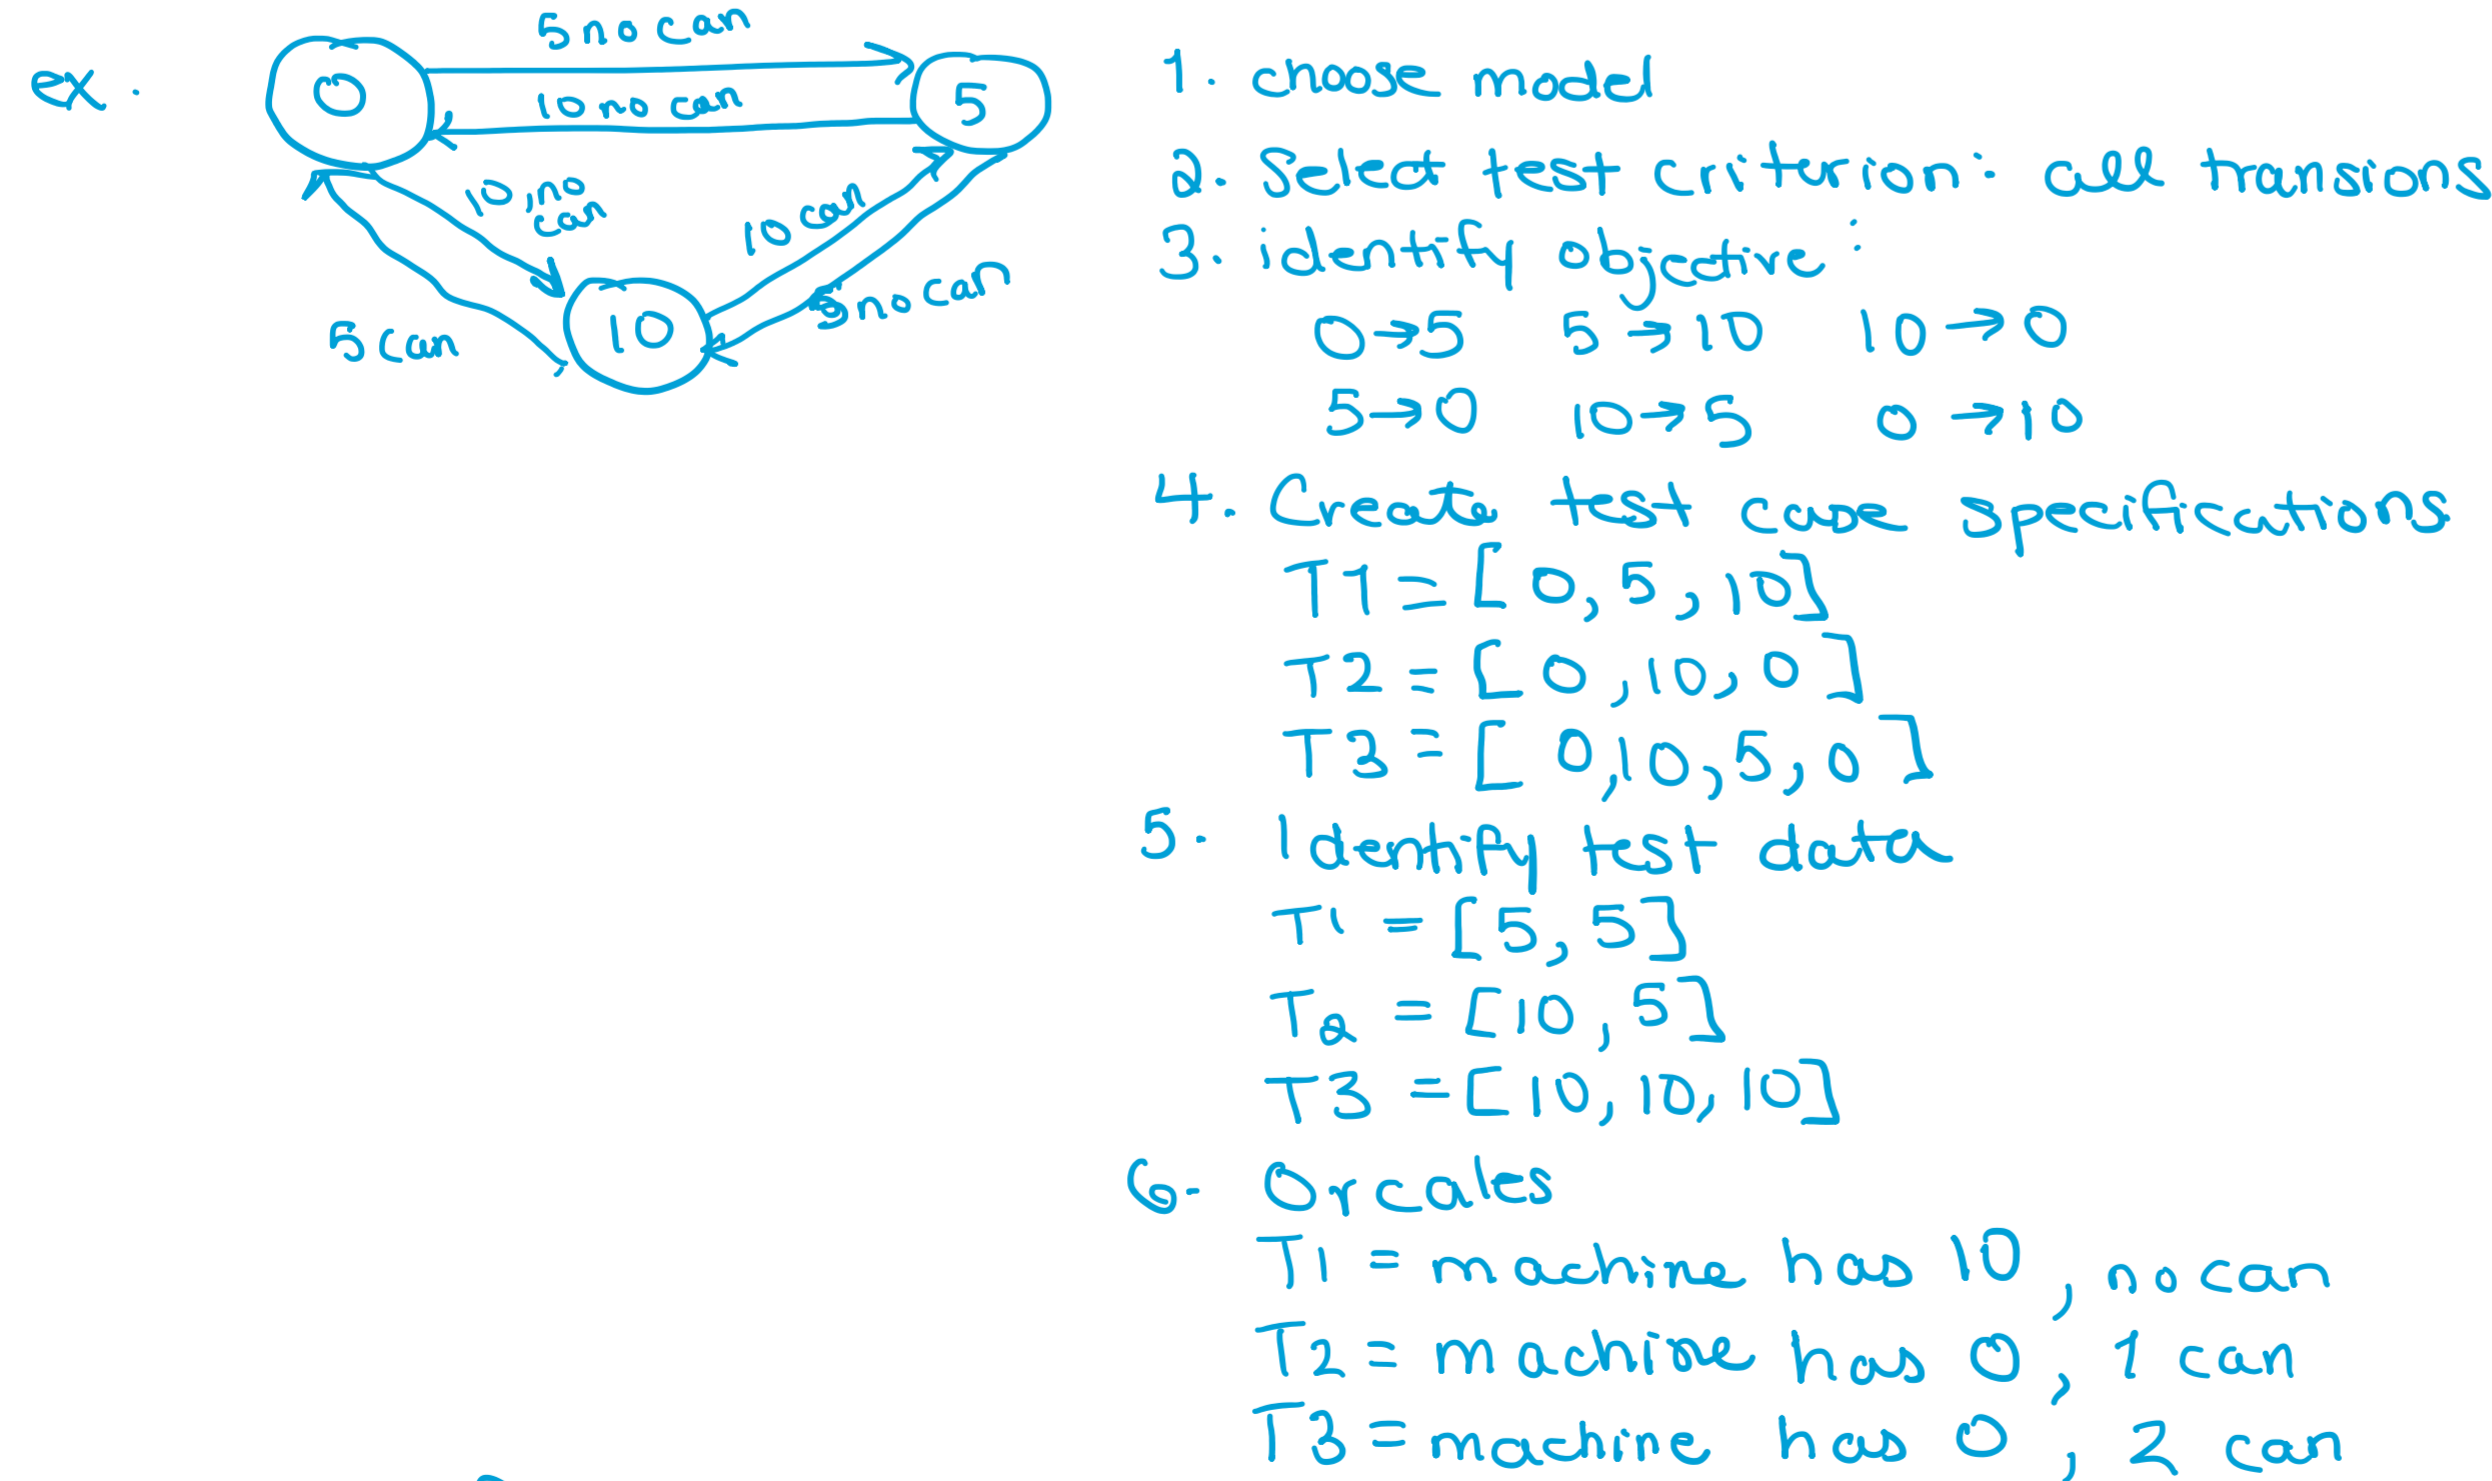 ex.
5 no can
0
5
10 no can
10, no
can
10 can
5 no can
5 can
10
1. choose model
2. Select test criterion: all transions
3. identify objective:
0→5 5→10 10→0
5→0 10→5 0→10
4. Create test case specifications
T1 = [0,5,10]
T2 = [0,10,0]
T3 = [0,10,5,0]
5. Identify test data
T1 = [5,5]
T2 = [10,5]
T3 = [10,10,10]
6. Oracles
T1 = machine has 10, no can
T2 = machine has 0, 1 can
T3 = machine has 0, 2 can